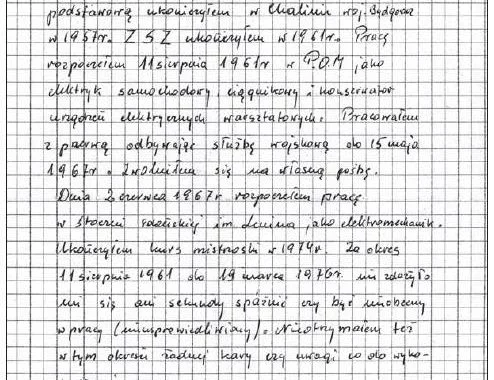 podstawową ukończyłem w Chalinie woj. Bydgoszcz
w 1957r. Z S Z ukończyłem w 1961r. Pracę
rozpocząłem 11 sierpnia 1961r w P.O.M jako
elektryk samochodowy, ciągnikowy i konserwator
urządzeń elektrycznych warsztatowych. Pracowałem
z przerwą odbywając służbę wojskową do 15 maja
1967r. Zwolniłem się na własną prośbę.
Dnia 2 czerwca 1967r. rozpocząłem pracę
w Stoczni Gdańskiej im. Lenina jako elektromechanik.
Ukończyłem kurs mistrzoski w 1974r. Za okres
11 sierpnia 1961 do 19 marca 1976r. nie zdarzyło
mi się ani sekundy spóźnić czy być nieobecny
w pracy (nieusprawiedliwiony). Nieotrzymałem też
w tym okresie żadnej kary czy uwagi co do wyko-